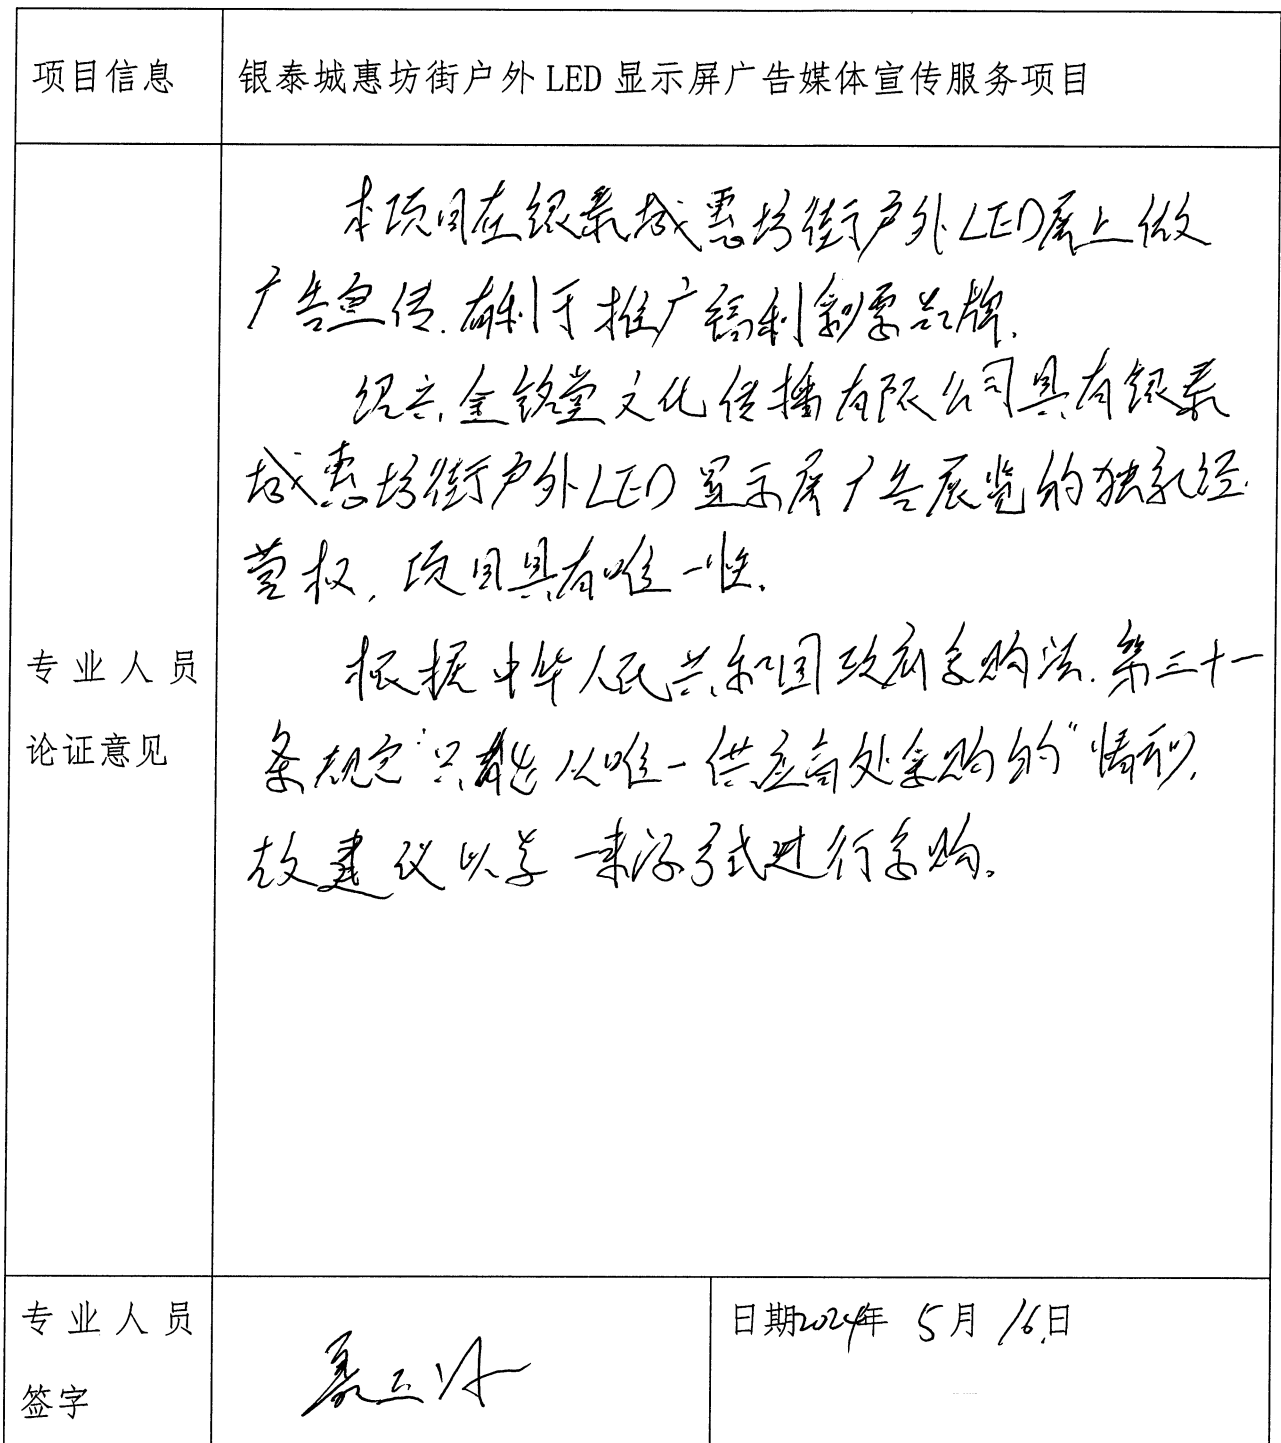 项目信息
银泰城惠坊街户外 LED 显示屏广告媒体宣传服务项目
专业人员
论证意见
本项目在银泰城惠坊街户外LED屏上做
广告宣传.有利于推广福利彩票品牌.
绍兴金铭堂文化传播有限公司具有银泰
城惠坊街户外LED显示屏广告展览的独家经
营权,项目具有唯一性.
根据中华人民共和国政府采购法.第三十一
条规定"只能从唯一供应商处采购的"情形,
故建议以单一来源方式进行采购。
专业人员
签字
日期2024年 5月 16日